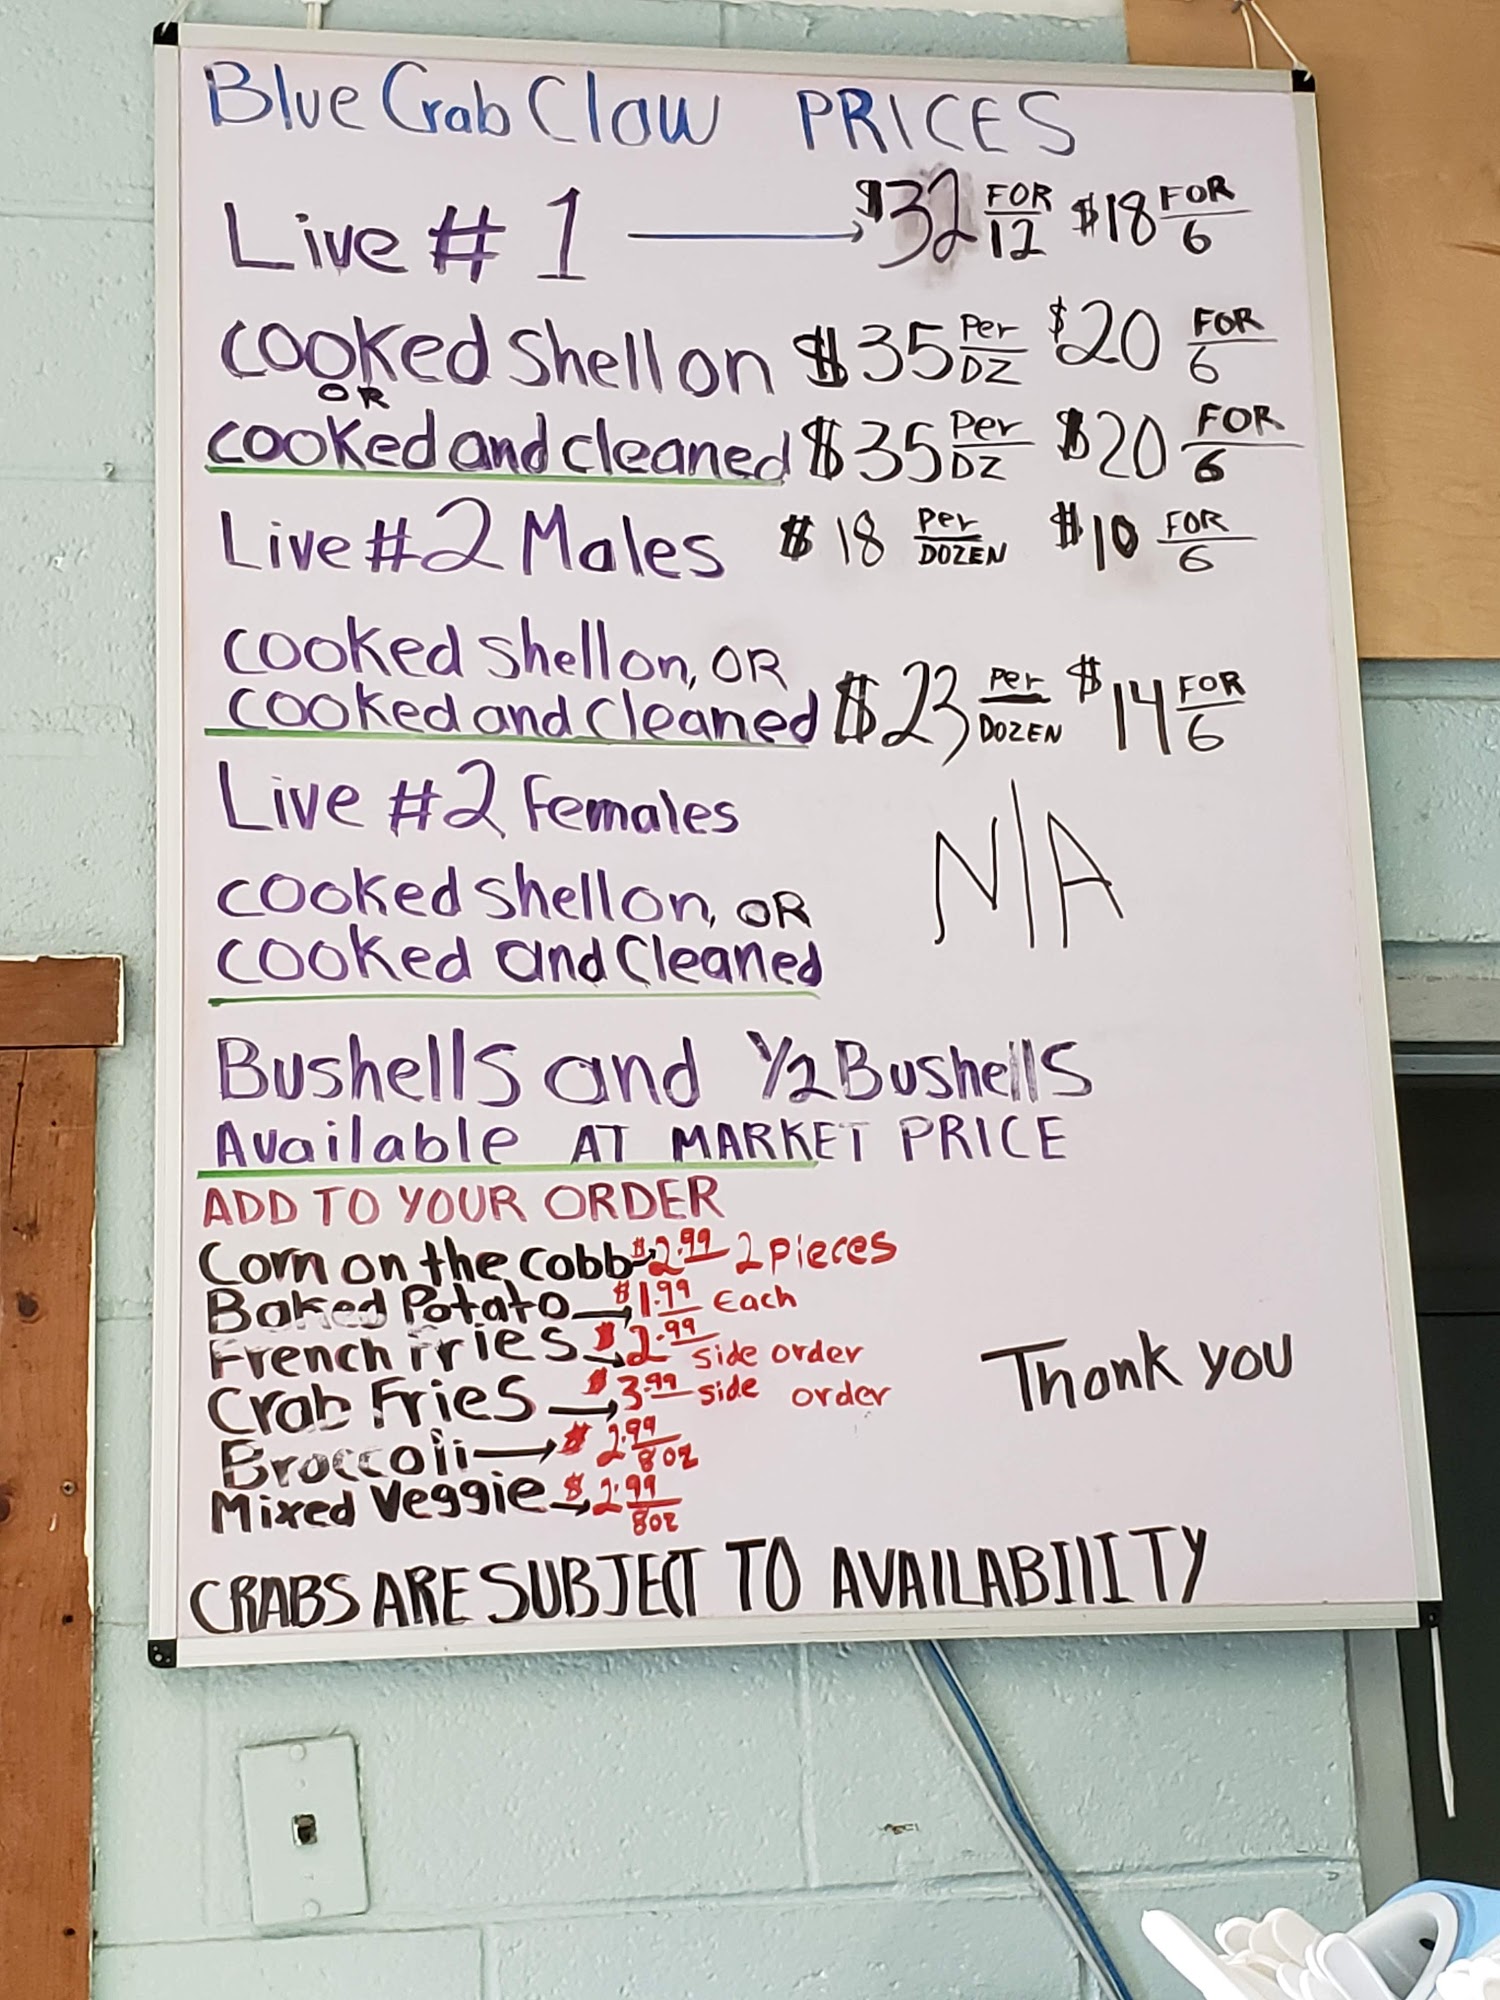 Blue Crab Claw PRICES
Live # 1 $32 FOR 12 $18 FOR 6
cooked shell on $35 Per DZ $20 FOR 6
OR
cooked and cleaned $35 Per DZ $20 FOR 6
Live #2 Males $18 Per DOZEN $10 FOR 6
cooked shell on, OR
cooked and cleaned $23 Per DOZEN $14 FOR 6
Live #2 Females
N/A
cooked shell on, OR
cooked and Cleaned
Bushells and 1/2 Bushells
Available AT MARKET PRICE
ADD TO YOUR ORDER
Corn on the cobb $2.99 2 pieces
Baked Potato $1.99 Each
French Fries $2.99 side order
Crab Fries $3.99 side order
Broccoli $2.99 8oz
Mixed Veggie $2.99 8oz
Thank you
CRABS ARE SUBJECT TO AVAILABIlITY